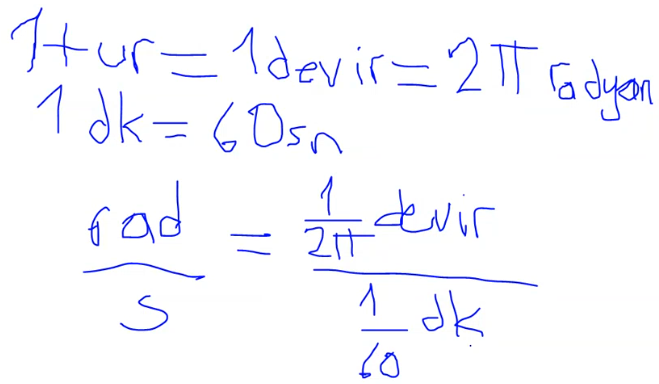 1 tur = 1 devir = 2π radyan
1 dk = 60 sn
rad/s = (1/2π devir)/(1/60 dk)